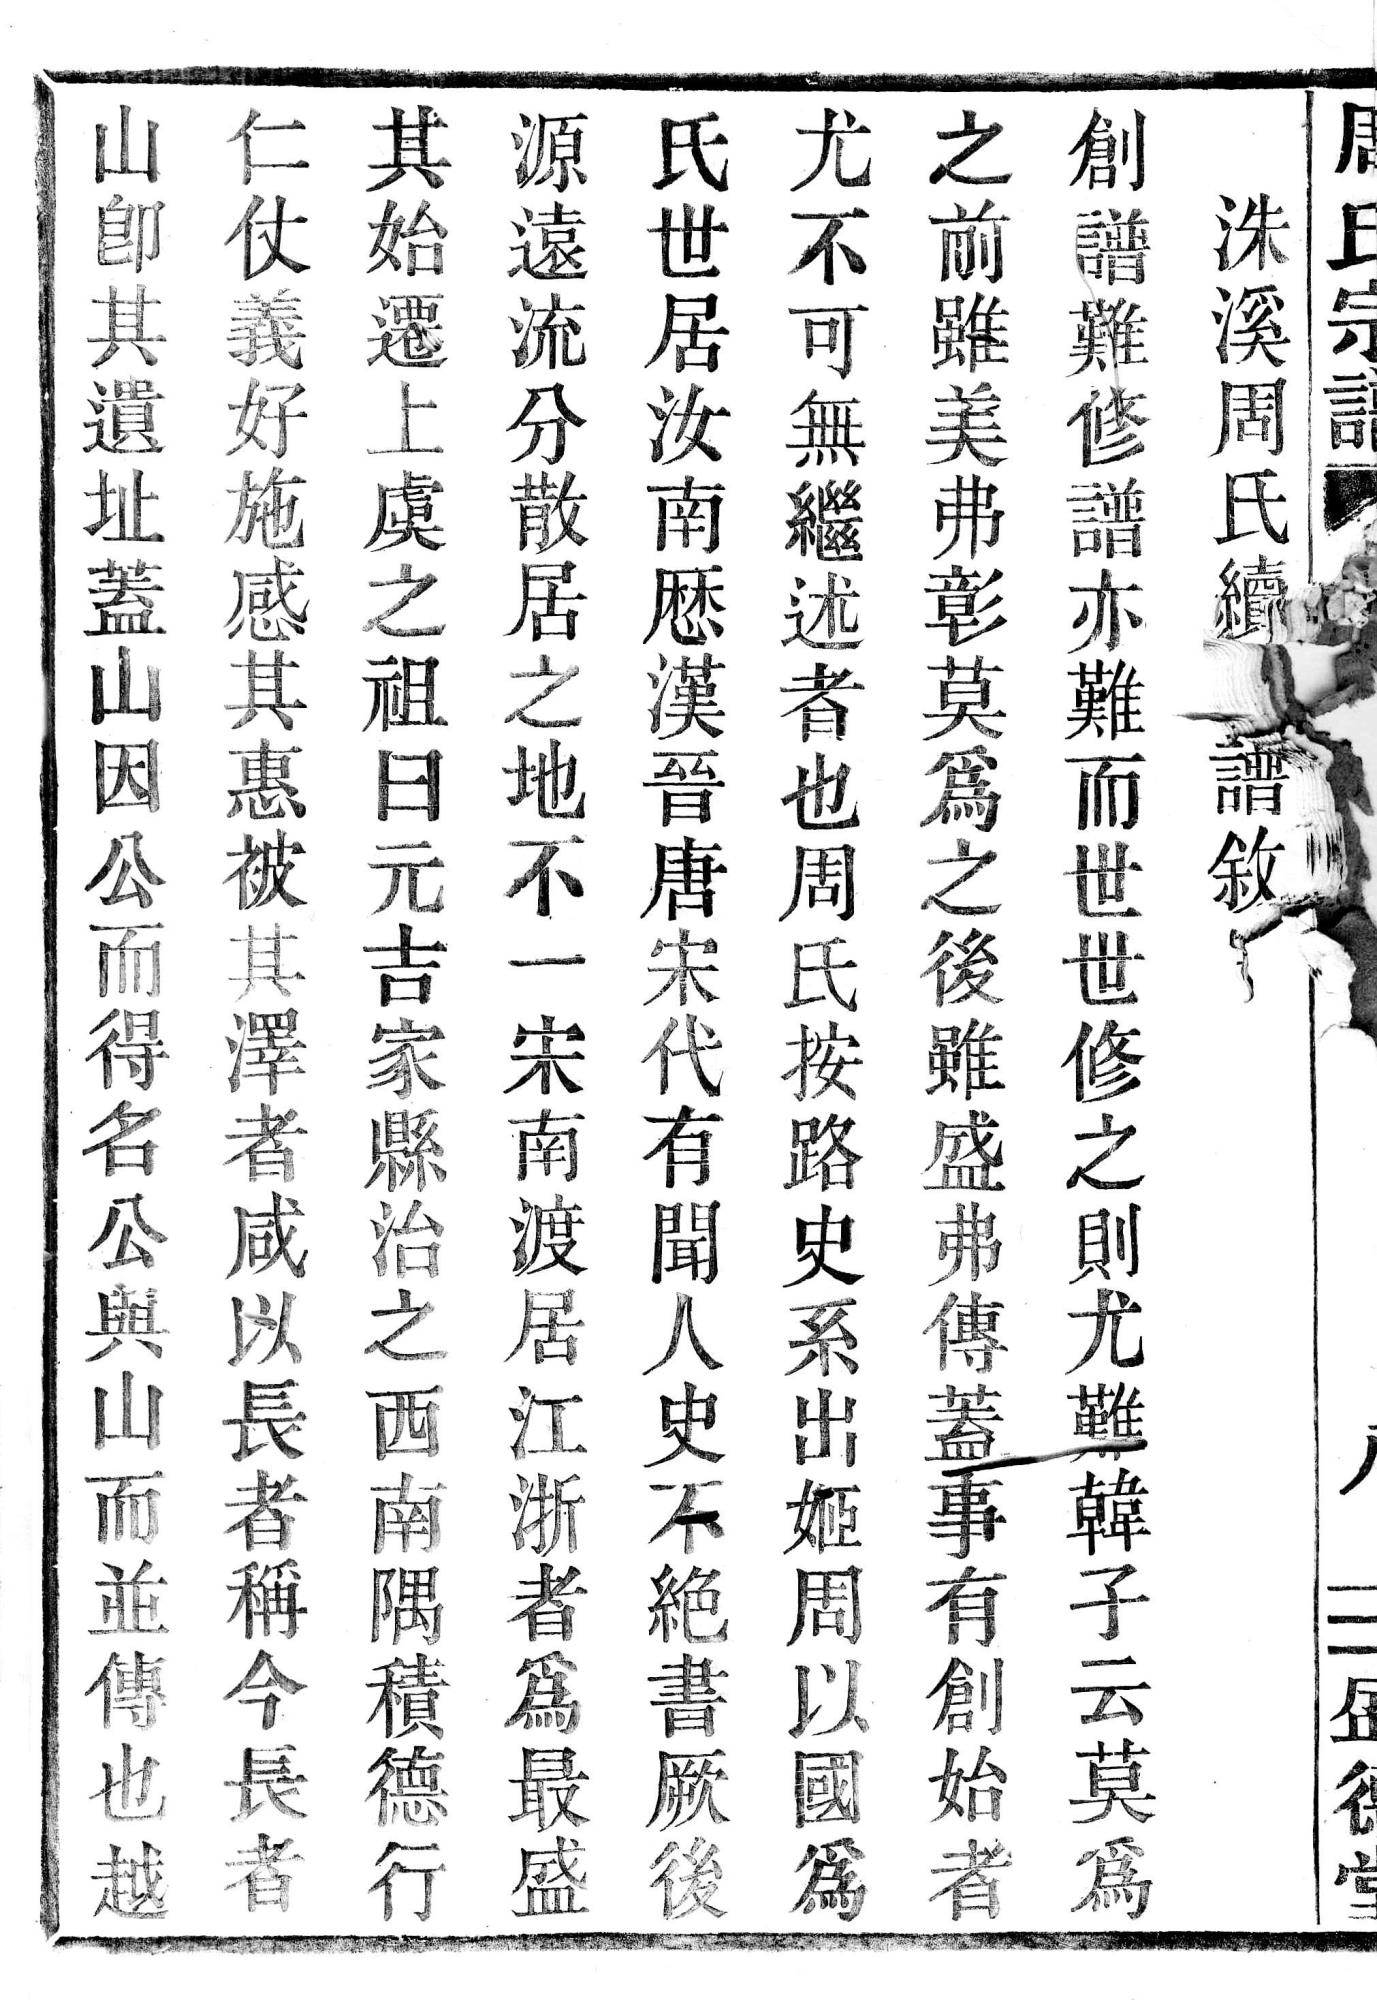 周氏宗譜
八
盛德堂
洙溪周氏續譜敘
創譜難修譜亦難而世世修之則尤難韓子云莫爲
之前雖美弗彰莫爲之後雖盛弗傳蓋事有創始者
尤不可無繼述者也周氏按路史系出姬周以國爲
氏世居汝南厯漢晉唐宋代有聞人史不絶書厥後
源遠流分散居之地不一宋南渡居江浙者爲最盛
其始遷上虞之祖曰元吉家縣治之西南隅積德行
仁仗義好施感其惠被其澤者咸以長者稱今長者
山卽其遺址蓋山因公而得名公與山而並傳也越